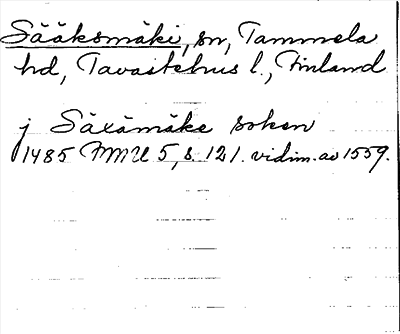 Sääksmäki, sn, Tammela
hd, Tavastehus l., Finland
j Säxämäke soken
1485 FMU 5, s. 121. vidim. av 1559.